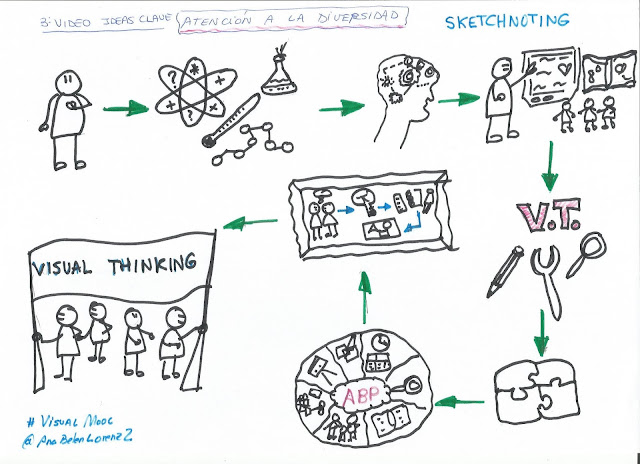 3: VIDEO IDEAS CLAVE ATENCIÓN A LA DIVERSIDAD
SKETCHNOTING
V.T.
VISUAL THINKING
ABP
# VISUAL MOOC
@ Ana Belen Lorenz2